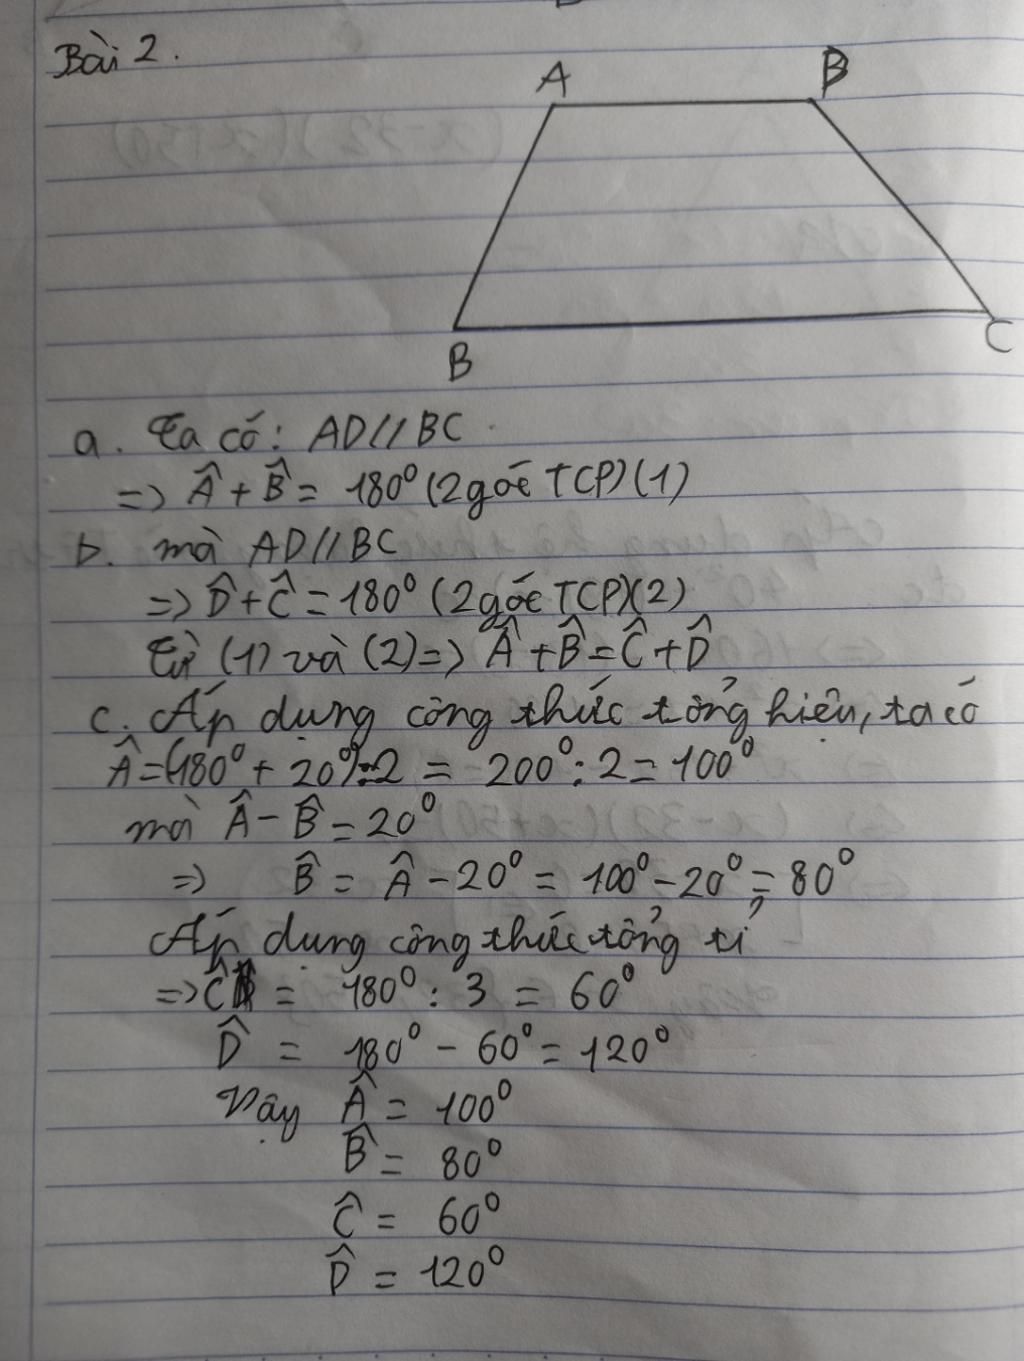 Bài 2.
A B
B C
a. Ta có: AD // BC.
=> Â + B̂ = 180° (2 góc TCP) (1)
b. mà AD // BC
=> D̂ + Ĉ = 180° (2 góc TCP) (2)
Từ (1) và (2) => Â + B̂ = Ĉ + D̂
c. Áp dụng công thức tổng hiệu, ta có
Â = (180° + 20°) : 2 = 200° : 2 = 100°
mà Â - B̂ = 20°
=> B̂ = Â - 20° = 100° - 20° = 80°
Áp dụng công thức tổng tỉ
=> Ĉ = 180° : 3 = 60°
D̂ = 180° - 60° = 120°
Vậy Â = 100°
B̂ = 80°
Ĉ = 60°
D̂ = 120°